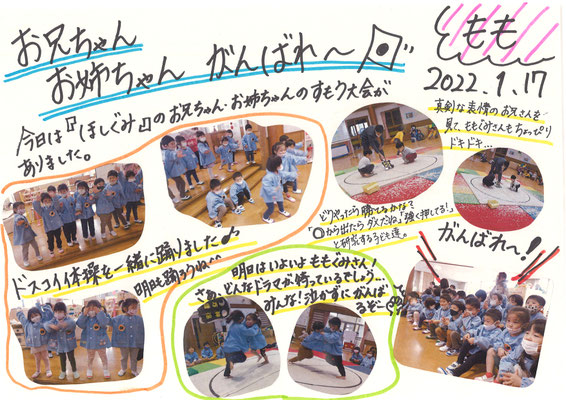 お兄ちゃん
お姉ちゃん がんばれ〜
もも
2022.1.17
今日は『ほしぐみ』のお兄ちゃん・お姉ちゃんのすもう大会が
ありました。
真剣な表情のお兄さんを
見て、ももぐみさんもちょっぴり
ドキドキ…
どうやったら勝てるかな？
「〇から出たらダメだね」「強く押してる！」
と研究する子ども達。
がんばれ〜！
ドスコイ体操を一緒に踊りました♪
明日も踊ろうね^^
明日はいよいよももぐみさん！
さぁ、どんなドラマが待っているでしょう…
みんな！泣かずにがんば
るぞ〜